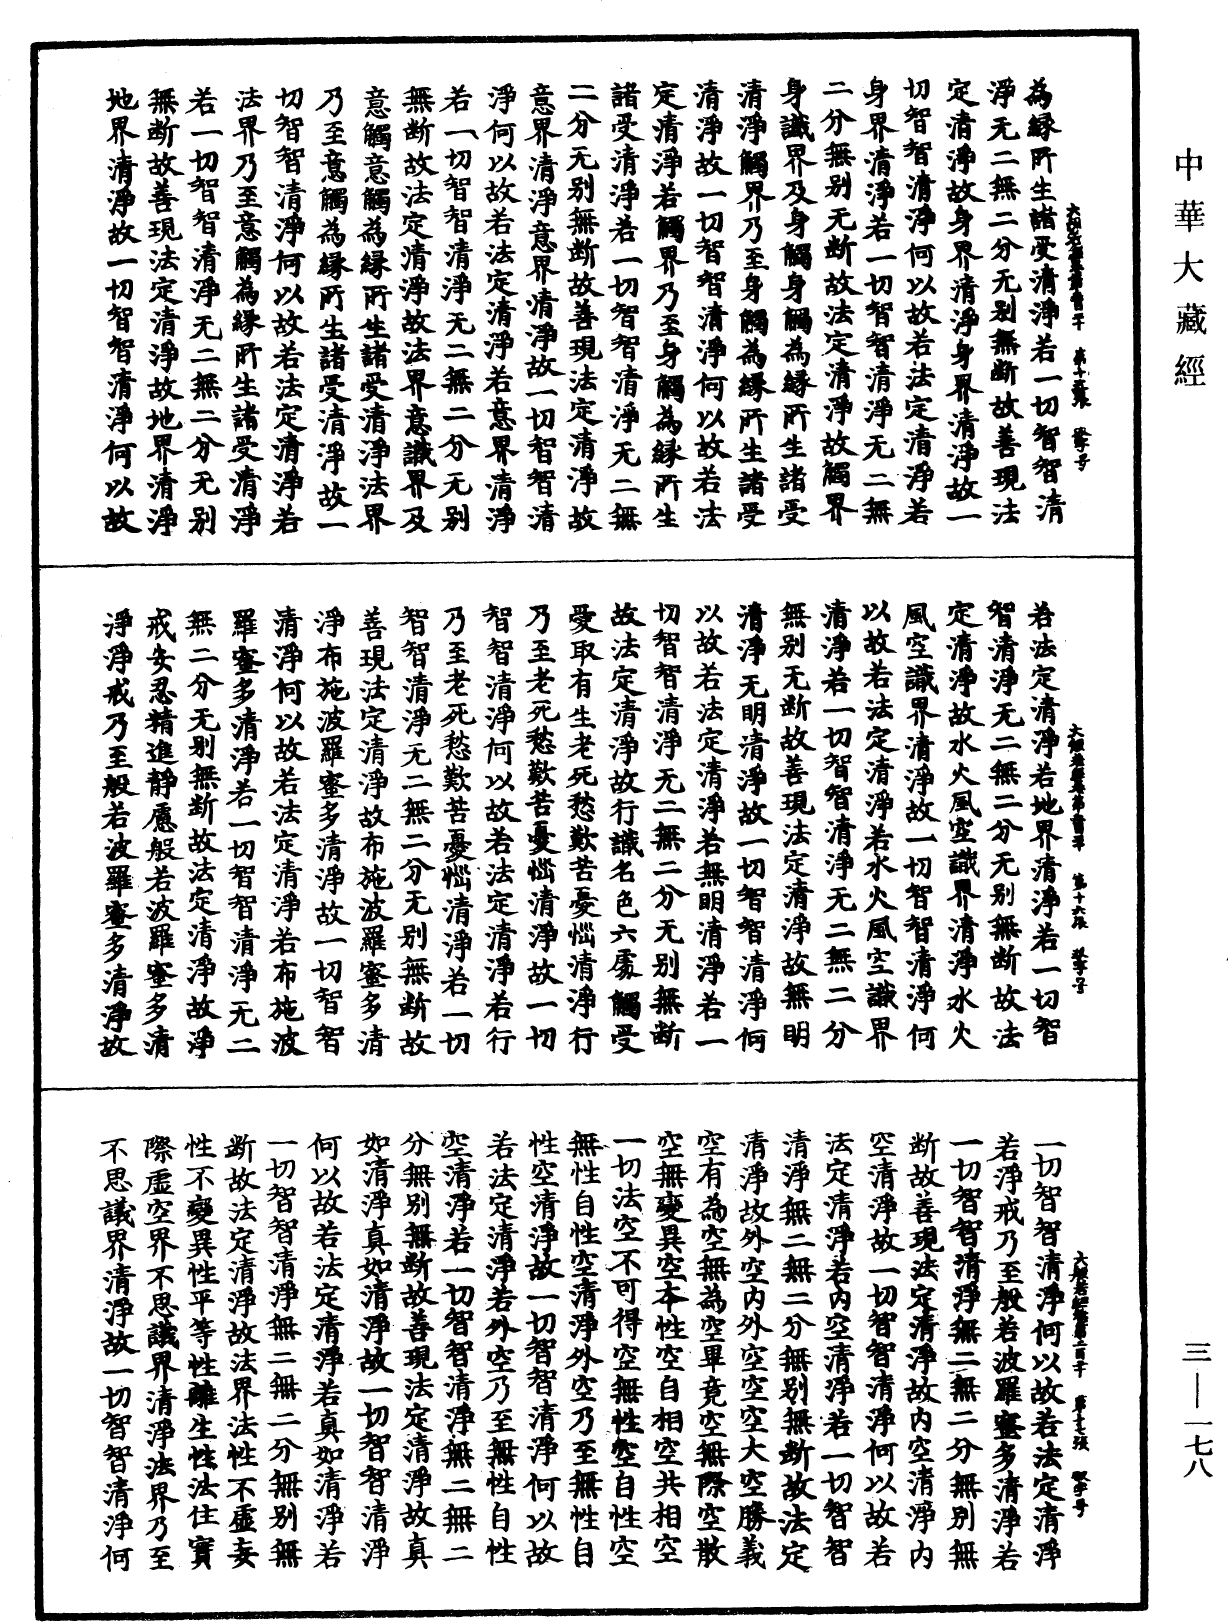 中華大藏經
為縁所生諸受清淨若一切智智清
淨无二無二分无别無断故善現法
定清淨故身界清淨身界清淨故一
切智智清淨何以故若法定清淨若
身界清淨若一切智智清淨无二無
二分無别无断故法定清淨故觸界
身識界及身觸身觸為縁所生諸受
清淨觸界乃至身觸為縁所生諸受
清淨故一切智智清淨何以故若法
定清淨若觸界乃至身觸為縁所生
諸受清淨若一切智智清淨无二無
二分无别無断故善現法定清淨故
意界清淨意界清淨故一切智智清
淨何以故若法定清淨若意界清淨
若一切智智清淨无二無二分无别
無断故法定清淨故法界意識界及
意觸意觸為縁所生諸受清淨法界
乃至意觸為縁所生諸受清淨故一
切智智清淨何以故若法定清淨若
法界乃至意觸為縁所生諸受清淨
若一切智智清淨无二無二分无别
無断故善現法定清淨故地界清淨
地界清淨故一切智智清淨何以故
若法定清淨若地界清淨若一切智
智清淨无二無二分无别無断故法
定清淨故水火風空識界清淨水火
風空識界清淨故一切智智清淨何
以故若法定清淨若水火風空識界
清淨若一切智智清淨无二無二分
無别无断故善現法定清淨故無明
清淨无明清淨故一切智智清淨何
以故若法定清淨若無明清淨若一
切智智清淨无二無二分无别無断
故法定清淨故行識名色六處觸受
愛取有生老死愁歎苦憂惱清淨行
乃至老死愁歎苦憂惱清淨故一切
智智清淨何以故若法定清淨若行
乃至老死愁歎苦憂惱清淨若一切
智智清淨无二無二分无别無断故
善現法定清淨故布施波羅蜜多清
淨布施波羅蜜多清淨故一切智智
清淨何以故若法定清淨若布施波
羅蜜多清淨若一切智智清淨无二
無二分无别無断故法定清淨故淨
戒安忍精進靜慮般若波羅蜜多清
淨淨戒乃至般若波羅蜜多清淨故
一切智智清淨何以故若法定清淨
若淨戒乃至般若波羅蜜多清淨若
一切智智清淨無二無二分無别無
断故善現法定清淨故内空清淨内
空清淨故一切智智清淨何以故若
法定清淨若内空清淨若一切智智
清淨無二無二分無别無断故法定
清淨故外空内外空空空大空勝義
空有為空無為空畢竟空無際空散
空無變異空本性空自相空共相空
一切法空不可得空無性空自性空
無性自性空清淨外空乃至無性自
性空清淨故一切智智清淨何以故
若法定清淨若外空乃至無性自性
空清淨若一切智智清淨無二無二
分無别無断故善現法定清淨故真
如清淨真如清淨故一切智智清淨
何以故若法定清淨若真如清淨若
一切智智清淨無二無二分無别無
断故法定清淨故法界法性不虛妄
性不變異性平等性離生性法住實
際虛空界不思議界清淨法界乃至
不思議界清淨故一切智智清淨何
三—一七八